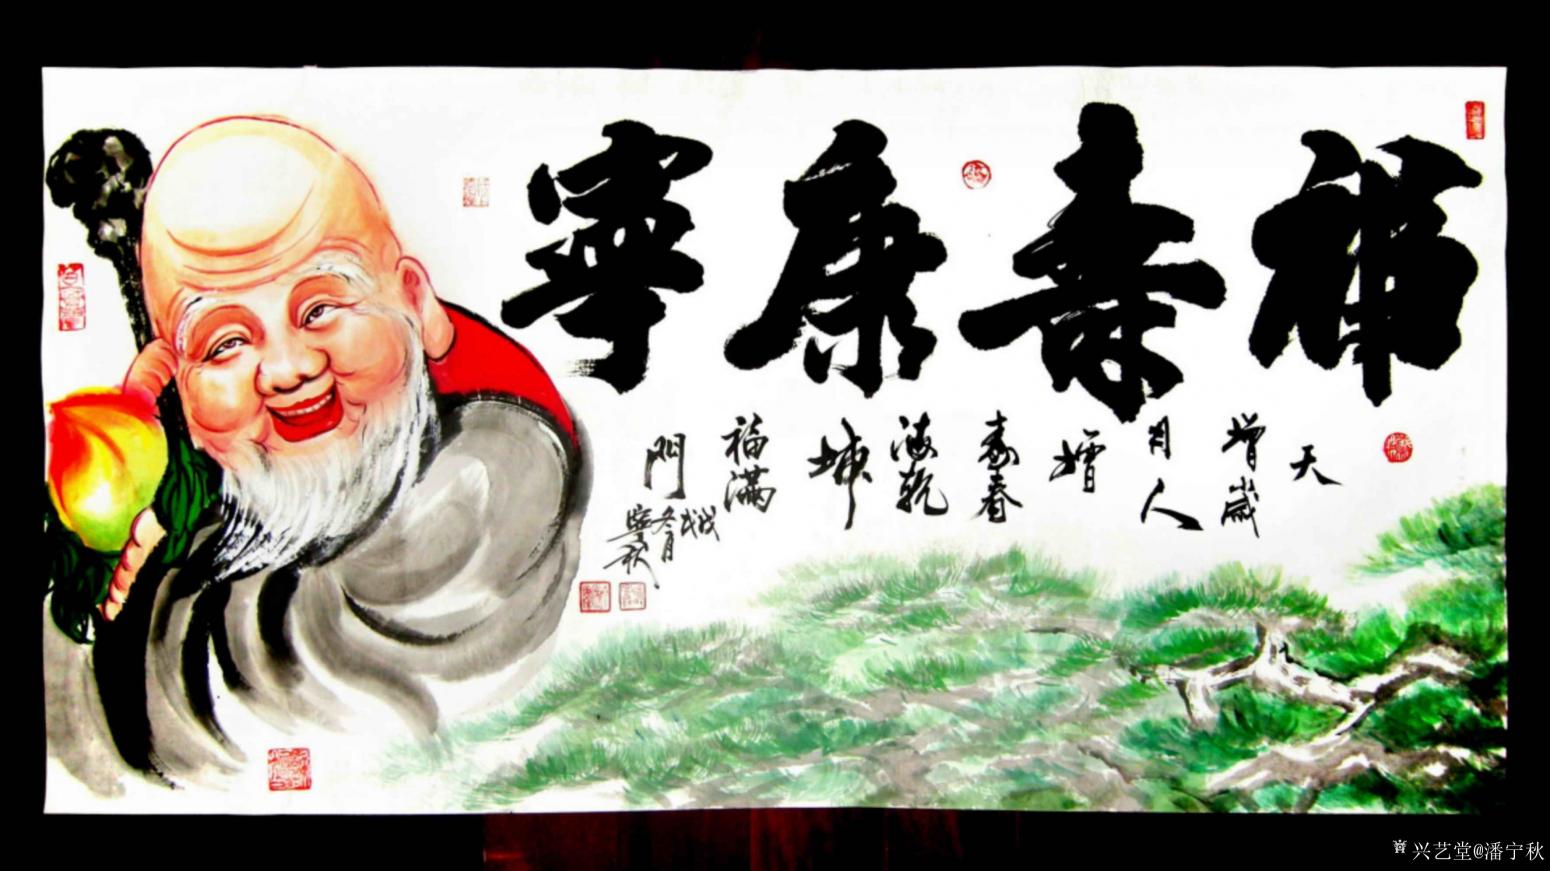 福壽康寧
天
增歲
月人
增
壽春
滿乾
坤
福滿
門
戊戌
冬月
寧秋
兴艺堂@潘宁秋